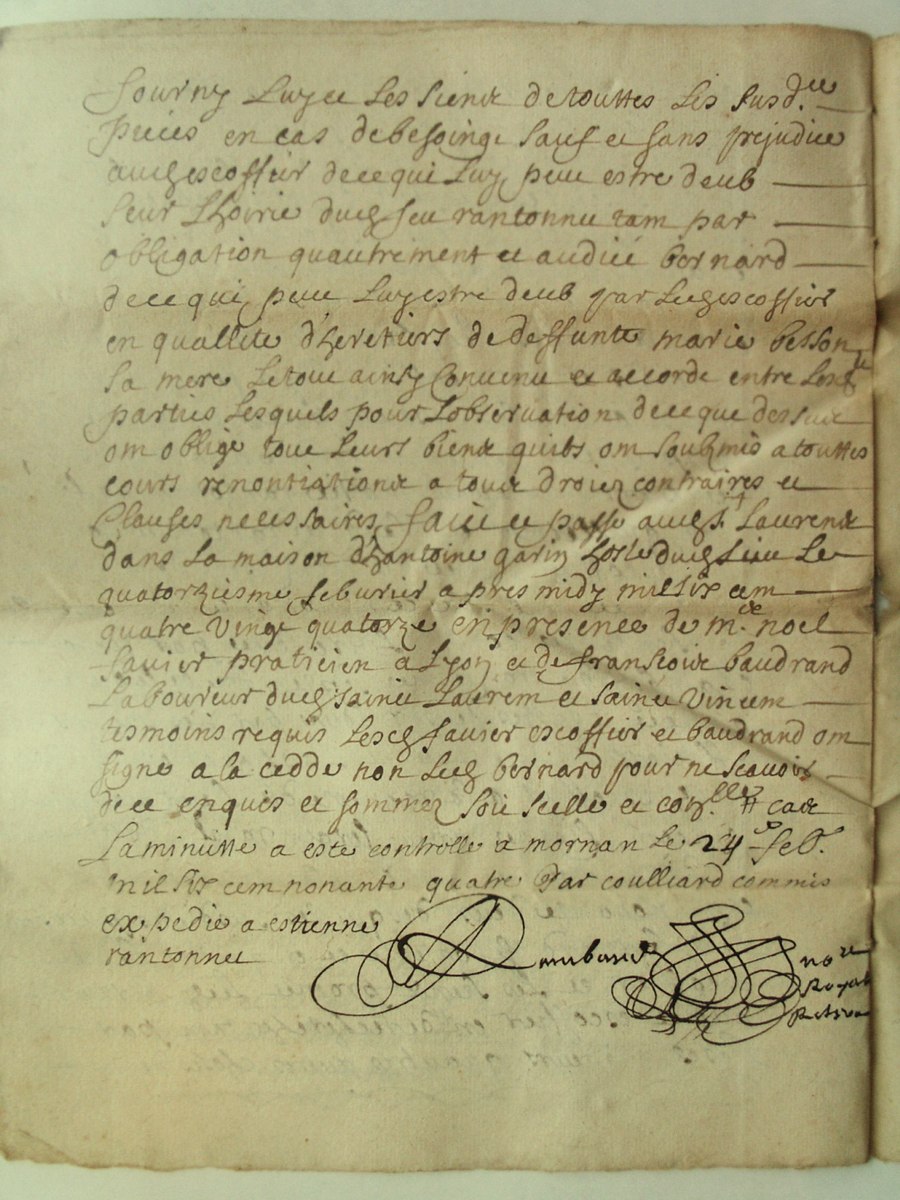 fourny Luy et Les siens de touttes Les susd.ttes
pieces en cas de besoing sauf et sans prejudice
audit escoffier de ce qui Luy peut estre deub
seur L'hoirie dudit feu rantonnet tant par
obligation quautrement et audict bernard
de ce qui peut Luy estre deub par Ledit escoffier
en quallite d'heretiers de deffunte marie besson
sa mere Le tout ainsy Convenu et accordé entre Lesdites
parties Lesquels pour Lobservation de ce que dessus
ont obligé tous Leurs biens quils ont soubzmis a touttes
cours renontiations a tous droiez contraires et
Clauses necessaires, faict et passé audit St Laurend
dans La maison d'hantoine garin hoste dudit Lieu Le
quatorziesme feburier apres midy mil six cent
quatre vingt quatorze en presence de m.re noel
favier praticien a Lyon et de fransois baudrand
Laboureur dudit sainct Laurent et sainct vincent
tesmoins requis Lesdits favier escoffier et baudrand ont
signé a la cedde non Ledit bernard pour ne scavoir
de ce enquis et sommez soit scellé et
La minutte a esté controllé a mornan Le 24e feb.r
mil six cent nonante quatre Par coulliard commis
expedié a estienne
rantonnet
no.re
Royal